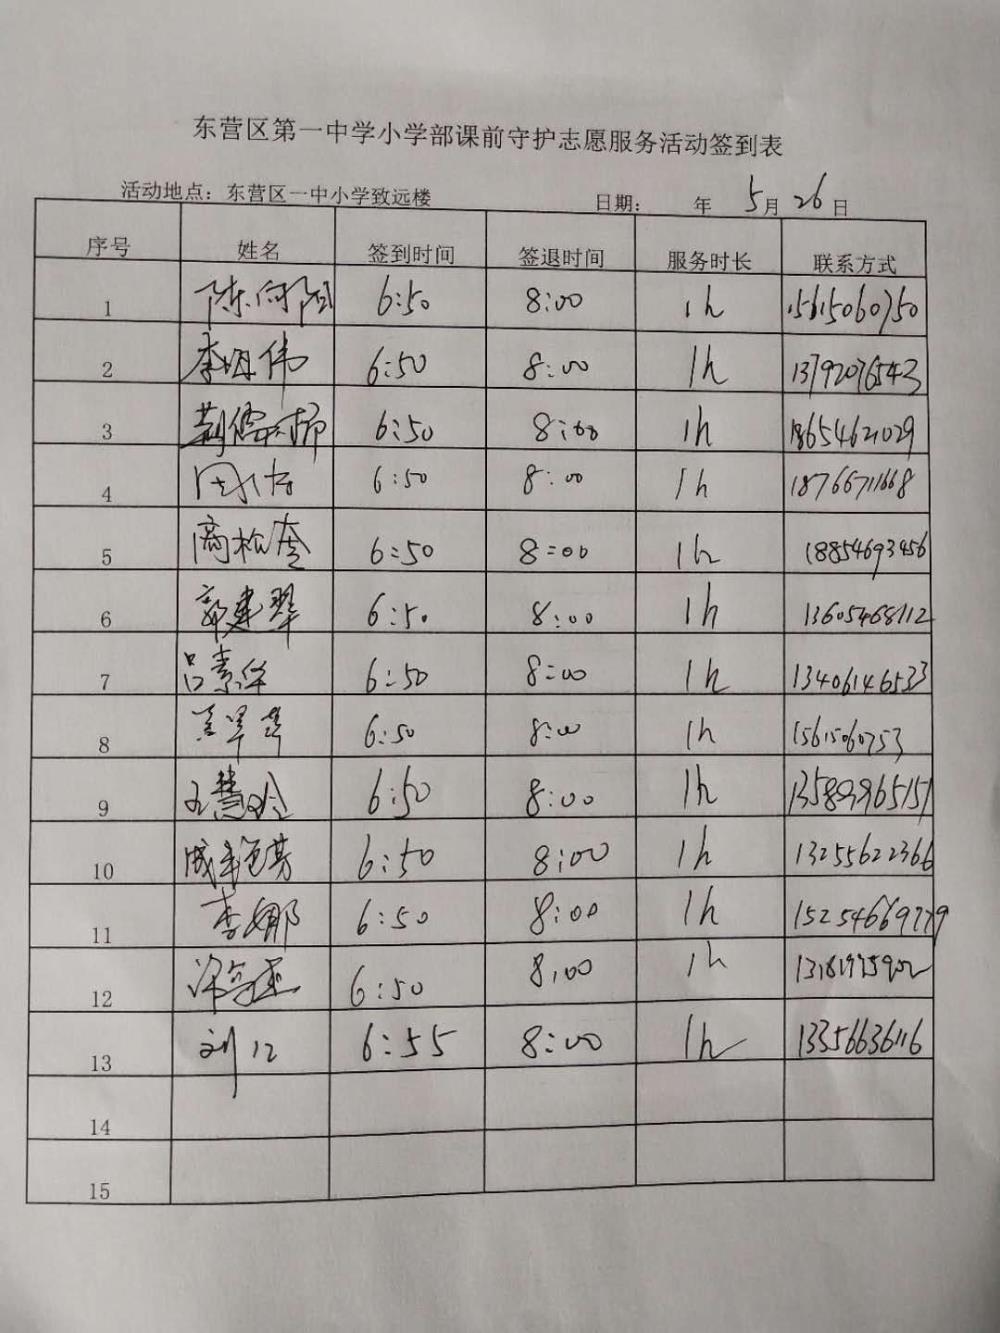 东营区第一中学小学部课前守护志愿服务活动签到表
活动地点：东营区一中小学致远楼 日期： 年 5月 26日
序号 姓名 签到时间 签退时间 服务时长 联系方式
1 陈向阳 6:50 8:00 1h 15615060750
2 李明伟 6:50 8:00 1h 13792076543
3 6:50 8:00 1h 18654621029
4 周倩 6:50 8:00 1h 18766711668
5 商松奎 6:50 8:00 1h 18854693456
6 郭建翠 6:50 8:00 1h 13605468112
7 吕素华 6:50 8:00 1h 13406146533
8 6:50 8:00 1h 15615060753
9 王慧玲 6:50 8:00 1h 13589965151
10 成艳芳 6:50 8:00 1h 13255622366
11 李娜 6:50 8:00 1h 15254669779
12 6:50 8:00 1h
13 刘江 6:55 8:00 1h 13356636116
14
15